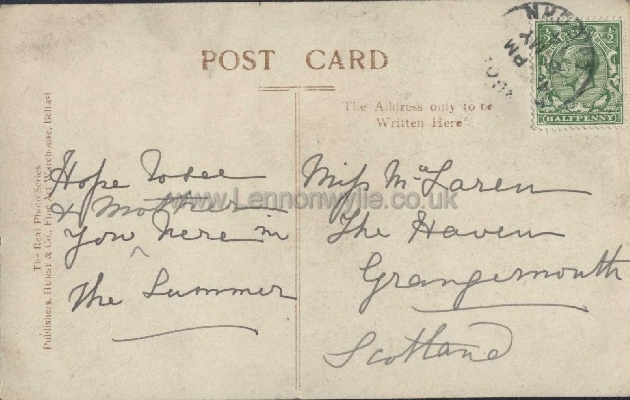 POST CARD
The Address only to be
Written Here
The Real Photo Series
Publishers, HURST & Co., Fine Art Warehouse, Belfast
HALFPENNY
PM
MY
Hope to see
& Mother
you ^ here in
the Summer
Miss McLaren
The Haven
Grangemouth
Scotland
www.Lennonwylie.co.uk